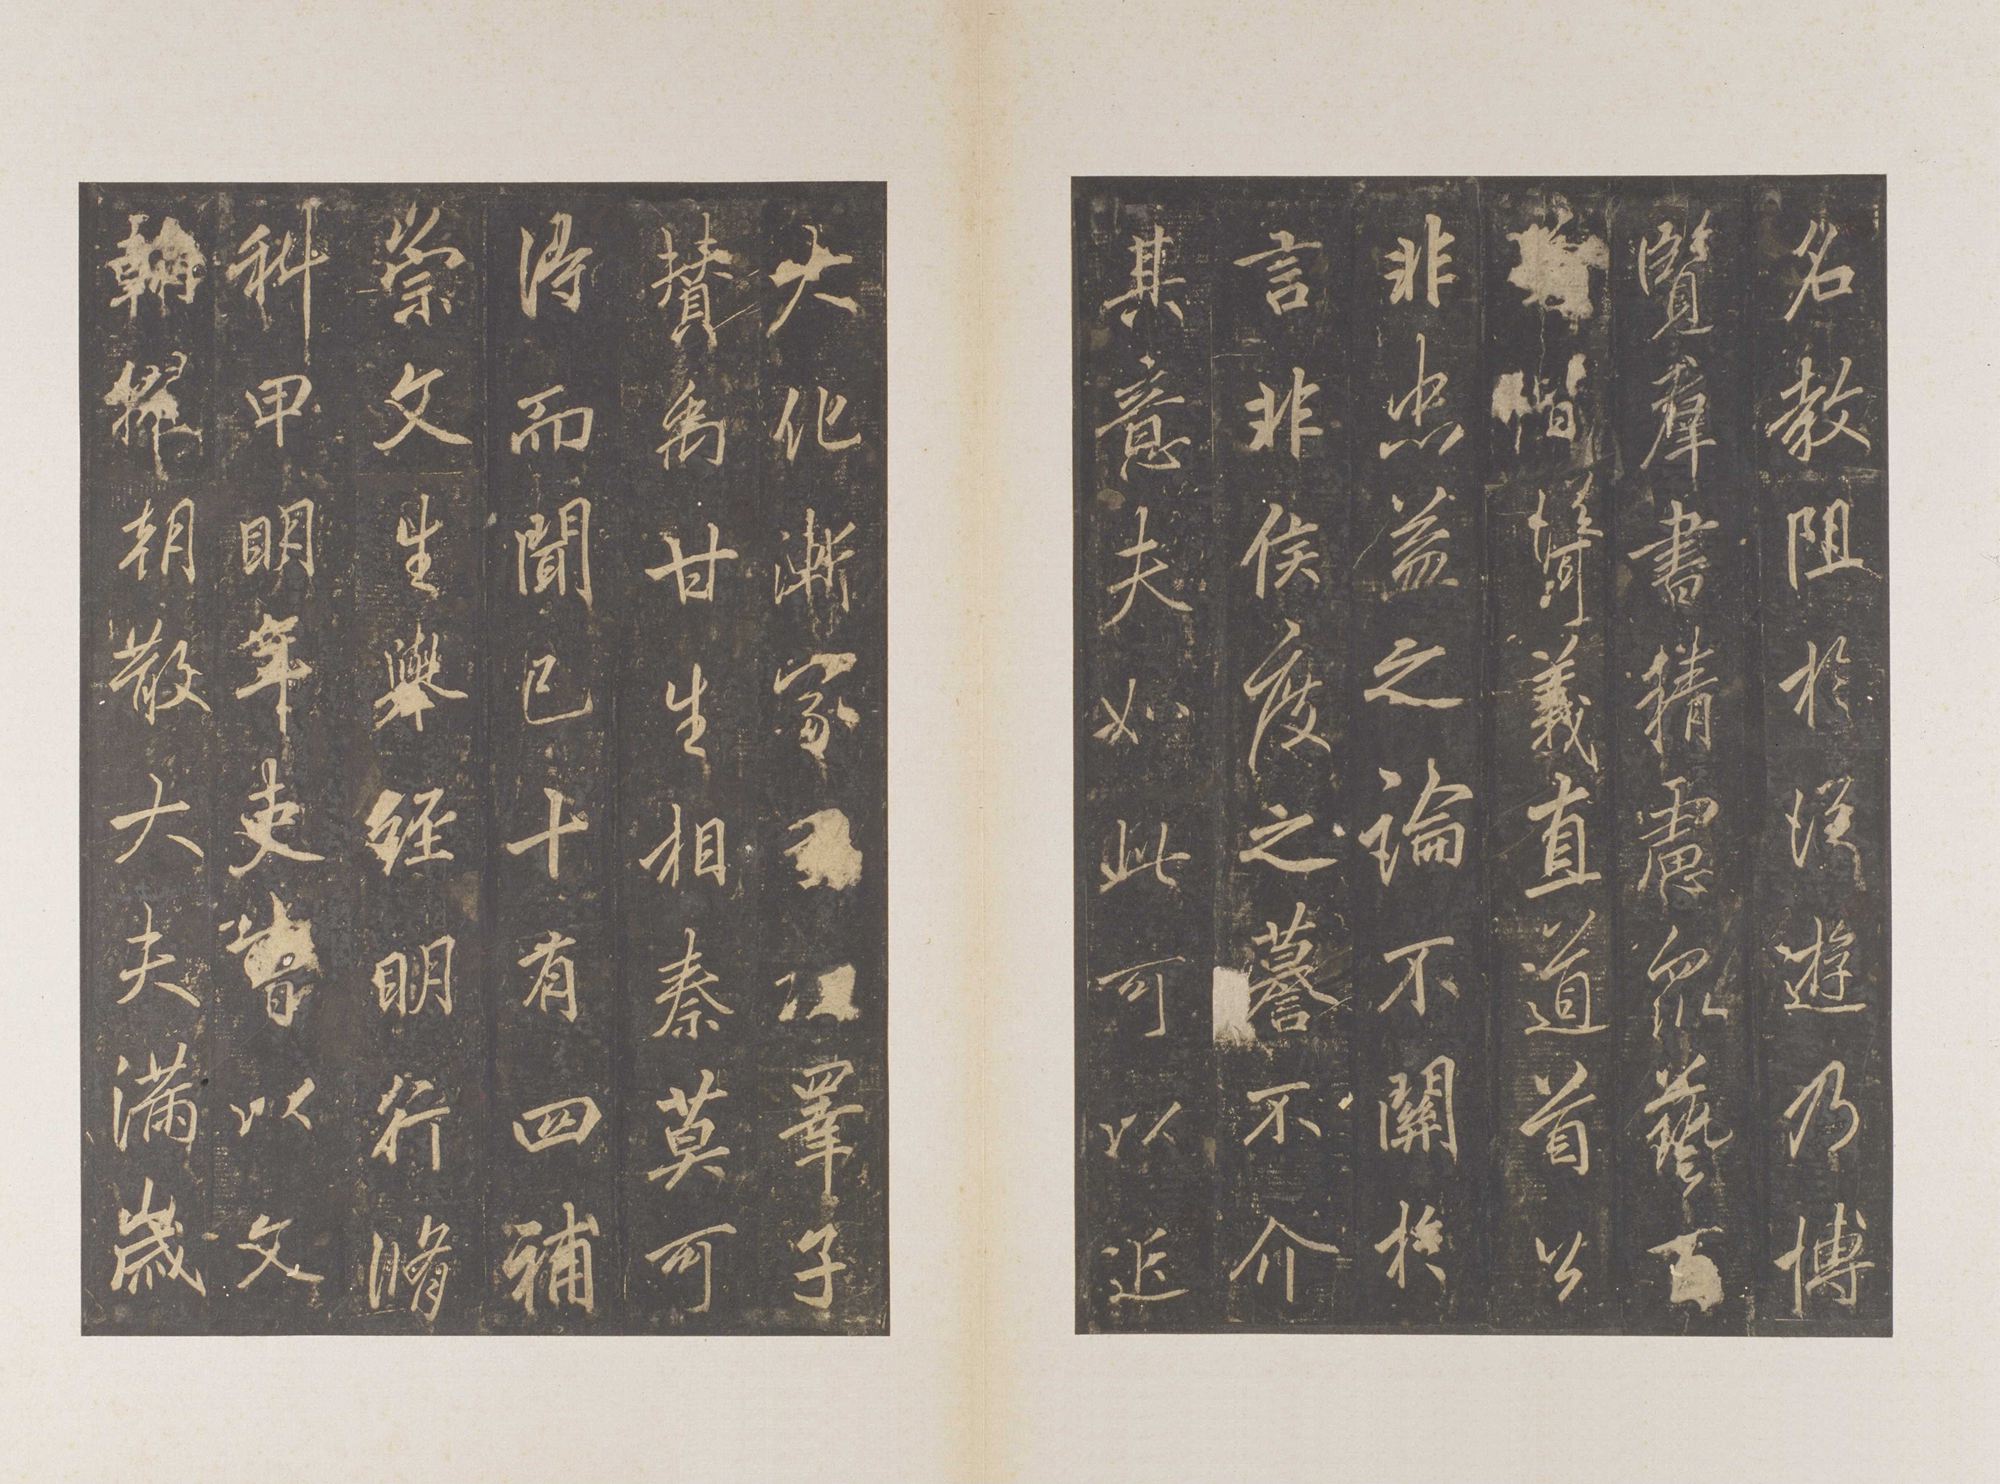 名教阻於從遊乃博
覽羣書精慮眾藝百
偕慕義直道首公
非忠益之論不關於
言非侯度之謩不介
其意夫如此可以近
大化漸家 睪子
賛禹甘生相秦莫可
得而聞已十有四補
崇文生舉經明行脩
科甲明年吏皆以文
翰擢朝散大夫滿歲